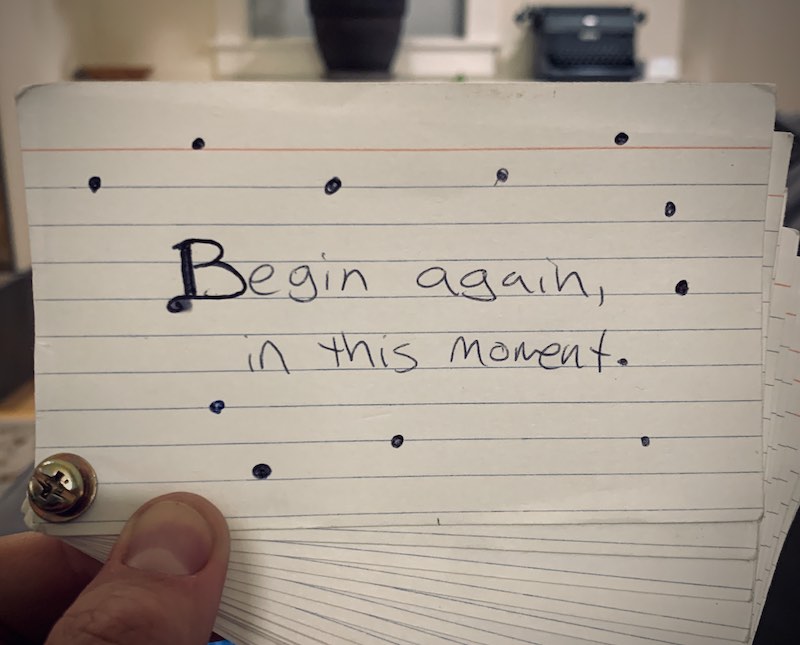 Begin again,
in this moment.